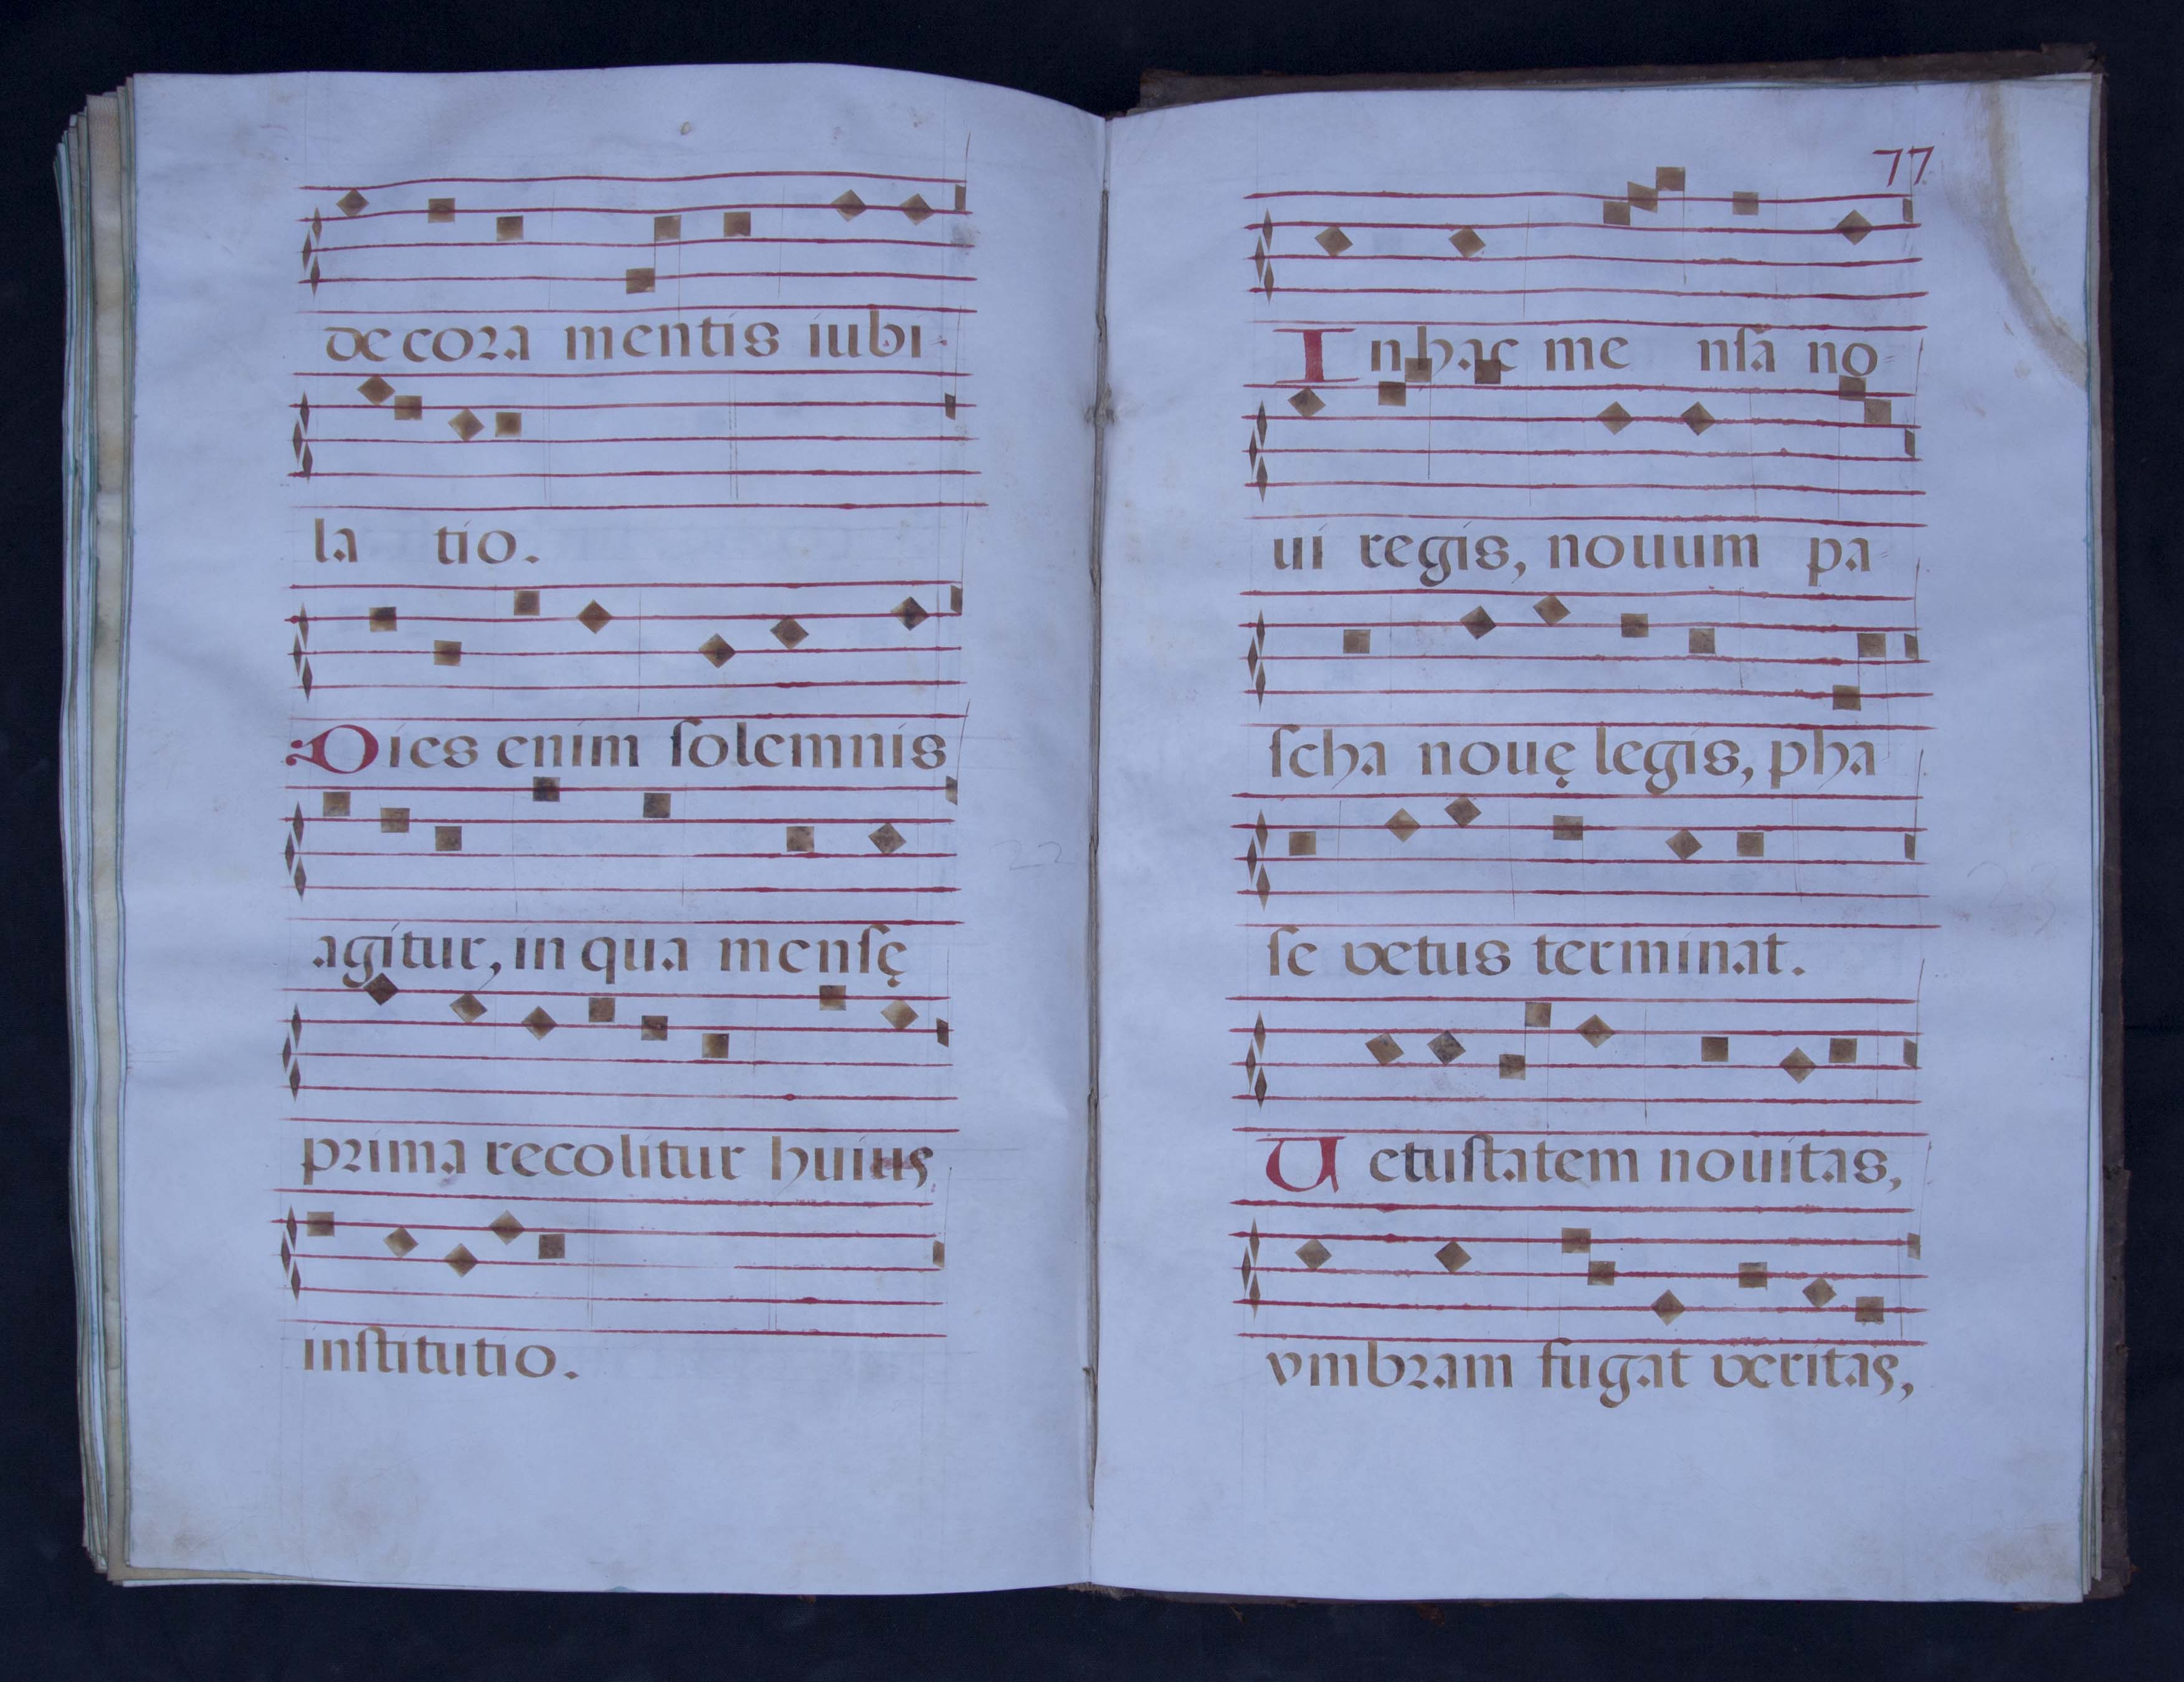 decora mentis iubi-
la tio.
Dies enim ſolemnis
agitur, in qua menſę
prima recolitur huius
inſtitutio.
22
77
In hac me nſa no-
ui regis, nouum pa-
ſcha nouę legis, pha-
ſe vetus terminat.
Uetuſtatem nouitas,
vmbram fugat veritas,
23